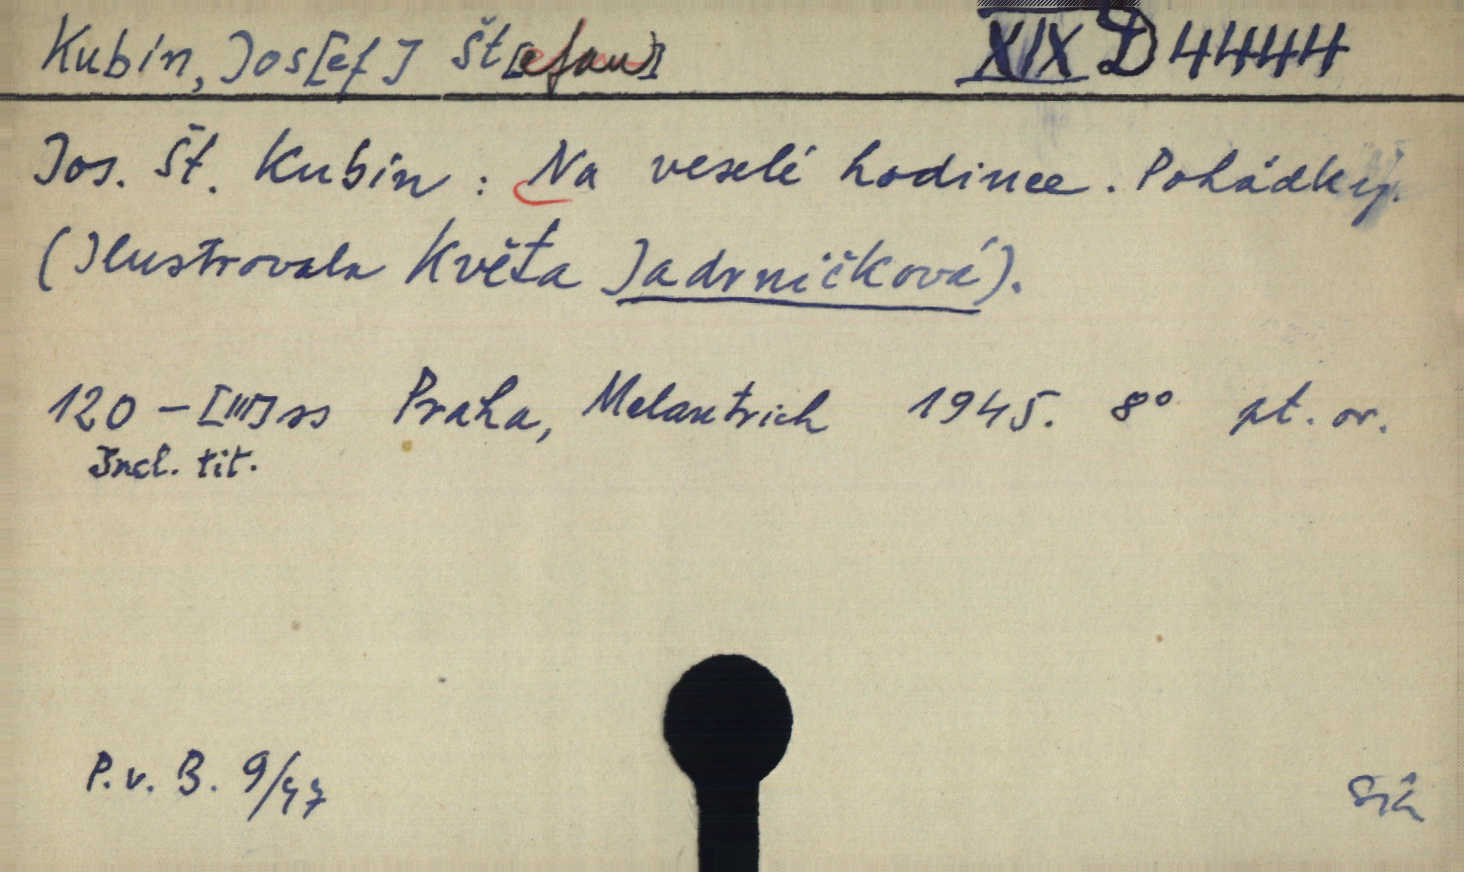 Kubín, Jos[ef] Št[efan] XIX D 4444
Jos. Št. Kubín : Na veselé hodince. Pohádky.
(Ilustrovala Květa Jadrníčková).
120 - [III] ss Praha, Melantrich 1945. 8° pt. or.
Incl. tit.
P. v. B. 9/47